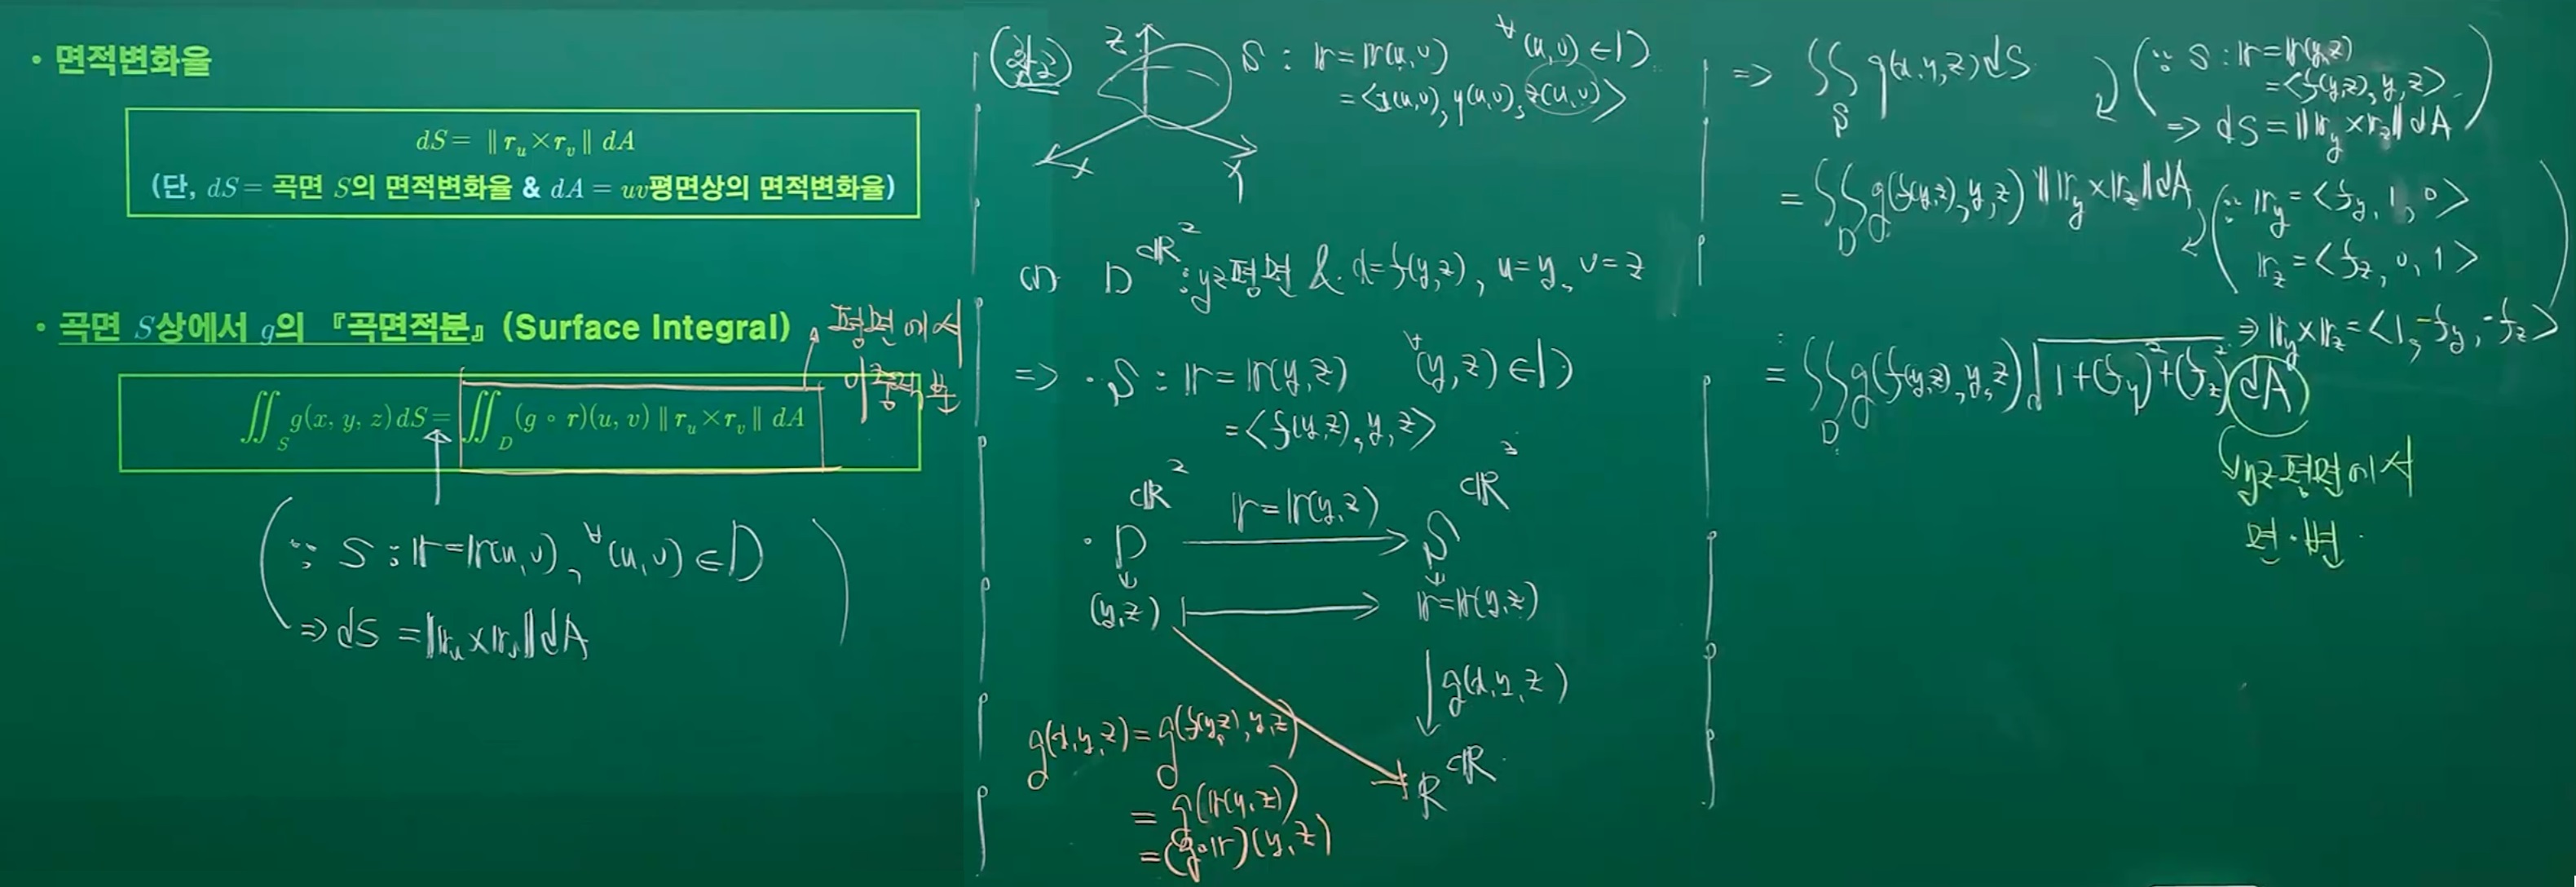 • 면적변화율
dS = ‖ r_u × r_v ‖ dA
(단, dS = 곡면 S의 면적변화율 & dA = uv평면상의 면적변화율)
• 곡면 S상에서 g의 『곡면적분』(Surface Integral)
평면에서
이중적분
∬_S g(x, y, z) dS = ∬_D (g ∘ r)(u, v) ‖ r_u × r_v ‖ dA
∵ S : r = r(u, v), ∀(u, v) ∈ D
⇒ dS = ‖r_u × r_v‖ dA
z
x
y
S : r = r(u, v) ∀(u, v) ∈ D
= <x(u,v), y(u,v), z(u,v)>
(1) D ⊂ R² : yz평면 & x = f(y, z), u = y, v = z
⇒ · S : r = r(y, z) ∀(y, z) ∈ D
= <f(y, z), y, z>
· D ⊂ R² r = r(y, z) S ⊂ R³
(y, z) ↦ r = r(y, z)
g(x, y, z)
R ⊂ R
g(x, y, z) = g(f(y, z), y, z)
= g(r(y, z))
= (g ∘ r)(y, z)
⇒ ∬_S g(x, y, z) dS
(∵ S : r = r(y, z)
= <f(y, z), y, z>
⇒ dS = ‖r_y × r_z‖ dA)
= ∬_D g(f(y, z), y, z) ‖r_y × r_z‖ dA
(∵ r_y = <f_y, 1, 0>
r_z = <f_z, 0, 1>
⇒ r_y × r_z = <1, -f_y, -f_z>)
= ∬_D g(f(y, z), y, z) √(1 + (f_y)² + (f_z)²) dA
yz평면에서
면·변·